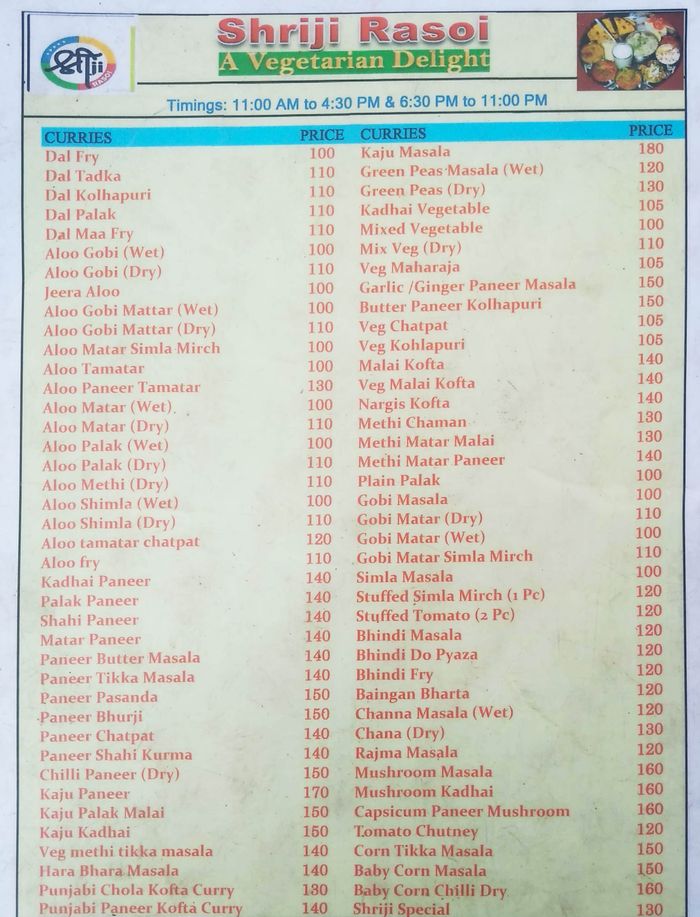 श्रीjii
RASOI
Shriji Rasoi
A Vegetarian Delight
Timings: 11:00 AM to 4:30 PM & 6:30 PM to 11:00 PM
CURRIES PRICE
Dal Fry 100
Dal Tadka 110
Dal Kolhapuri 110
Dal Palak 110
Dal Maa Fry 110
Aloo Gobi (Wet) 100
Aloo Gobi (Dry) 110
Jeera Aloo 100
Aloo Gobi Mattar (Wet) 100
Aloo Gobi Mattar (Dry) 110
Aloo Matar Simla Mirch 100
Aloo Tamatar 100
Aloo Paneer Tamatar 130
Aloo Matar (Wet) 100
Aloo Matar (Dry) 110
Aloo Palak (Wet) 100
Aloo Palak (Dry) 110
Aloo Methi (Dry) 110
Aloo Shimla (Wet) 100
Aloo Shimla (Dry) 110
Aloo tamatar chatpat 120
Aloo fry 110
Kadhai Paneer 140
Palak Paneer 140
Shahi Paneer 140
Matar Paneer 140
Paneer Butter Masala 140
Paneer Tikka Masala 140
Paneer Pasanda 150
Paneer Bhurji 150
Paneer Chatpat 140
Paneer Shahi Kurma 140
Chilli Paneer (Dry) 150
Kaju Paneer 170
Kaju Palak Malai 150
Kaju Kadhai 150
Veg methi tikka masala 140
Hara Bhara Masala 140
Punjabi Chola Kofta Curry 130
Punjabi Paneer Kofta Curry 140
CURRIES PRICE
Kaju Masala 180
Green Peas Masala (Wet) 120
Green Peas (Dry) 130
Kadhai Vegetable 105
Mixed Vegetable 100
Mix Veg (Dry) 110
Veg Maharaja 105
Garlic /Ginger Paneer Masala 150
Butter Paneer Kolhapuri 150
Veg Chatpat 105
Veg Kohlapuri 105
Malai Kofta 140
Veg Malai Kofta 140
Nargis Kofta 140
Methi Chaman 130
Methi Matar Malai 130
Methi Matar Paneer 140
Plain Palak 100
Gobi Masala 100
Gobi Matar (Dry) 110
Gobi Matar (Wet) 100
Gobi Matar Simla Mirch 110
Simla Masala 100
Stuffed Simla Mirch (1 Pc) 120
Stuffed Tomato (2 Pc) 120
Bhindi Masala 120
Bhindi Do Pyaza 120
Bhindi Fry 120
Baingan Bharta 120
Channa Masala (Wet) 120
Chana (Dry) 130
Rajma Masala 120
Mushroom Masala 160
Mushroom Kadhai 160
Capsicum Paneer Mushroom 160
Tomato Chutney 120
Corn Tikka Masala 150
Baby Corn Masala 150
Baby Corn Chilli Dry 160
Shriji Special 130